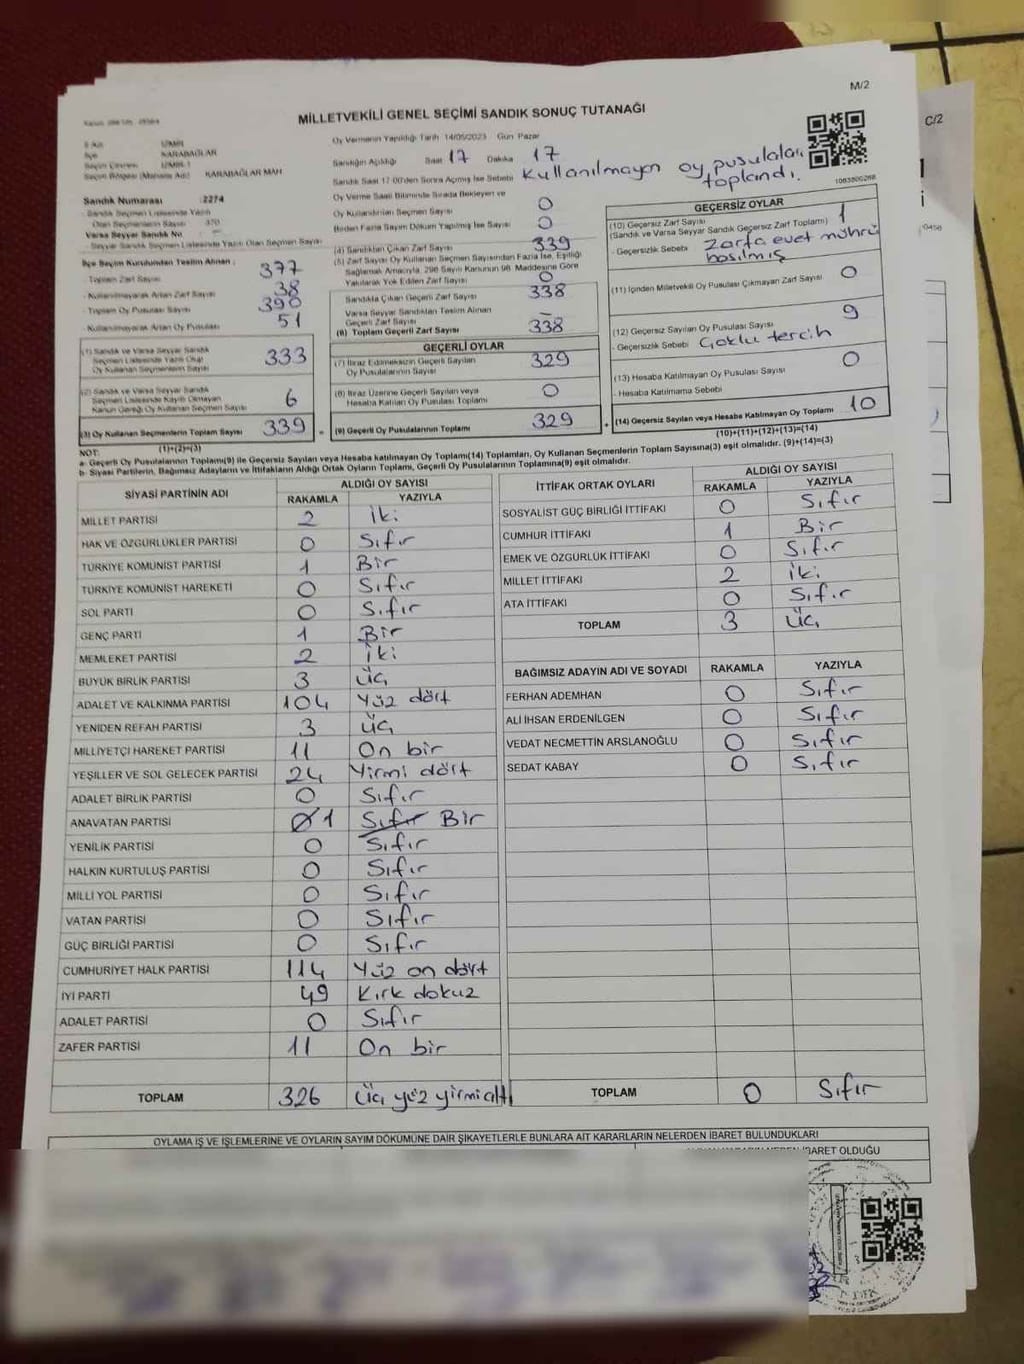 M/2
MİLLETVEKİLİ GENEL SEÇİMİ SANDIK SONUÇ TUTANAĞI
C/2
Oy Vermenin Yapıldığı Tarih 14/05/2023 Gün Pazar
İlçe KARABAĞLAR
Seçim Çevresi İZMİR-1
KARABAĞLAR MAH
Sandığın Açıldığı Saat 17 Dakika 17
Sandık Saat 17.00'den Sonra Açılmış İse Sebebi Kullanılmayan oy pusulaları toplandı.
1083800268
Sandık Numarası :2274
- Sandık Seçmen Listesinde Yazılı
Olan Seçmenlerin Sayısı 370
Varsa Seyyar Sandık No
- Seyyar Sandık Seçmen Listesinde Yazılı Olan Seçmen Sayısı
İlçe Seçim Kurulundan Teslim Alınan ;
- Toplam Zarf Sayısı 377
- Kullanılmayarak Artan Zarf Sayısı 38
- Toplam Oy Pusulası Sayısı 390
- Kullanılmayarak Artan Oy Pusulası 51
(1) Sandık ve Varsa Seyyar Sandık
Seçmen Listesinde Yazılı Olup
Oy Kullanan Seçmenlerin Sayısı 333
(2) Sandık ve Varsa Seyyar Sandık
Seçmen Listesinde Kayıtlı Olmayan
Kanun Gereği Oy Kullanan Seçmen Sayısı 6
(3) Oy Kullanan Seçmenlerin Toplam Sayısı 339
(1)+(2)=(3)
Oy Verme Saati Bitiminde Sırada Bekleyen ve
Oy Kullandırılan Seçmen Sayısı 0
Birden Fazla Sayım Döküm Yapılmış İse Sayısı 0
(4) Sandıktan Çıkan Zarf Sayısı 339
(5) Zarf Sayısı Oy Kullanan Seçmen Sayısından Fazla İse, Eşitliği
Sağlamak Amacıyla, 298 Sayılı Kanunun 98. Maddesine Göre
Yakılarak Yok Edilen Zarf Sayısı 0
Sandıkta Çıkan Geçerli Zarf Sayısı 338
Varsa Seyyar Sandıktan Teslim Alınan
Geçerli Zarf Sayısı -
(6) Toplam Geçerli Zarf Sayısı 338
GEÇERLİ OYLAR
(7) İtiraz Edilmeksizin Geçerli Sayılan
Oy Pusulalarının Sayısı 329
(8) İtiraz Üzerine Geçerli Sayılan veya
Hesaba Katılan Oy Pusulası Toplamı 0
= (9) Geçerli Oy Pusulalarının Toplamı 329
GEÇERSİZ OYLAR
(10) Geçersiz Zarf Sayısı
(Sandık ve Varsa Seyyar Sandık Geçersiz Zarf Toplamı) 1
- Geçersizlik Sebebi Zarfa evet mührü basılmış
(11) İçinden Milletvekili Oy Pusulası Çıkmayan Zarf Sayısı 0
(12) Geçersiz Sayılan Oy Pusulası Sayısı 9
- Geçersizlik Sebebi Çoklu tercih
(13) Hesaba Katılmayan Oy Pusulası Sayısı 0
- Hesaba Katılmama Sebebi
+ (14) Geçersiz Sayılan veya Hesaba Katılmayan Oy Toplamı 10
(10)+(11)+(12)+(13)=(14)
NOT:
a- Geçerli Oy Pusulalarının Toplamı(9) ile Geçersiz Sayılan veya Hesaba Katılmayan Oy Toplamı(14) Toplamları, Oy Kullanan Seçmenlerin Toplam Sayısına(3) eşit olmalıdır. (9)+(14)=(3)
b- Siyasi Partilerin, Bağımsız Adayların ve İttifakların Aldığı Ortak Oyların Toplamı, Geçerli Oy Pusulalarının Toplamına(9) eşit olmalıdır.
SİYASİ PARTİNİN ADI ALDIĞI OY SAYISI
RAKAMLA YAZIYLA
MİLLET PARTİSİ 2 iki
HAK VE ÖZGÜRLÜKLER PARTİSİ 0 Sıfır
TÜRKİYE KOMÜNİST PARTİSİ 1 Bir
TÜRKİYE KOMÜNİST HAREKETİ 0 Sıfır
SOL PARTİ 0 Sıfır
GENÇ PARTİ 1 Bir
MEMLEKET PARTİSİ 2 iki
BÜYÜK BİRLİK PARTİSİ 3 üç
ADALET VE KALKINMA PARTİSİ 104 Yüz dört
YENİDEN REFAH PARTİSİ 3 üç
MİLLİYETÇİ HAREKET PARTİSİ 11 On bir
YEŞİLLER VE SOL GELECEK PARTİSİ 24 Yirmi dört
ADALET BİRLİK PARTİSİ 0 Sıfır
ANAVATAN PARTİSİ 0 1 Sıfır Bir
YENİLİK PARTİSİ 0 Sıfır
HALKIN KURTULUŞ PARTİSİ 0 Sıfır
MİLLİ YOL PARTİSİ 0 Sıfır
VATAN PARTİSİ 0 Sıfır
GÜÇ BİRLİĞİ PARTİSİ 0 Sıfır
CUMHURİYET HALK PARTİSİ 114 Yüz on dört
İYİ PARTİ 49 Kırk dokuz
ADALET PARTİSİ 0 Sıfır
ZAFER PARTİSİ 11 On bir
TOPLAM 326 Üç yüz yirmi altı
İTTİFAK ORTAK OYLARI ALDIĞI OY SAYISI
RAKAMLA YAZIYLA
SOSYALİST GÜÇ BİRLİĞİ İTTİFAKI 0 Sıfır
CUMHUR İTTİFAKI 1 Bir
EMEK VE ÖZGÜRLÜK İTTİFAKI 0 Sıfır
MİLLET İTTİFAKI 2 iki
ATA İTTİFAKI 0 Sıfır
TOPLAM 3 üç
BAĞIMSIZ ADAYIN ADI VE SOYADI RAKAMLA YAZIYLA
FERHAN ADEMHAN 0 Sıfır
ALİ İHSAN ERDENİLGEN 0 Sıfır
VEDAT NECMETTİN ARSLANOĞLU 0 Sıfır
SEDAT KABAY 0 Sıfır
TOPLAM 0 Sıfır
OYLAMA İŞ VE İŞLEMLERİNE VE OYLARIN SAYIM DÖKÜMÜNE DAİR ŞİKAYETLERLE BUNLARA AİT KARARLARIN NELERDEN İBARET BULUNDUKLARI
İBARET OLDUĞU